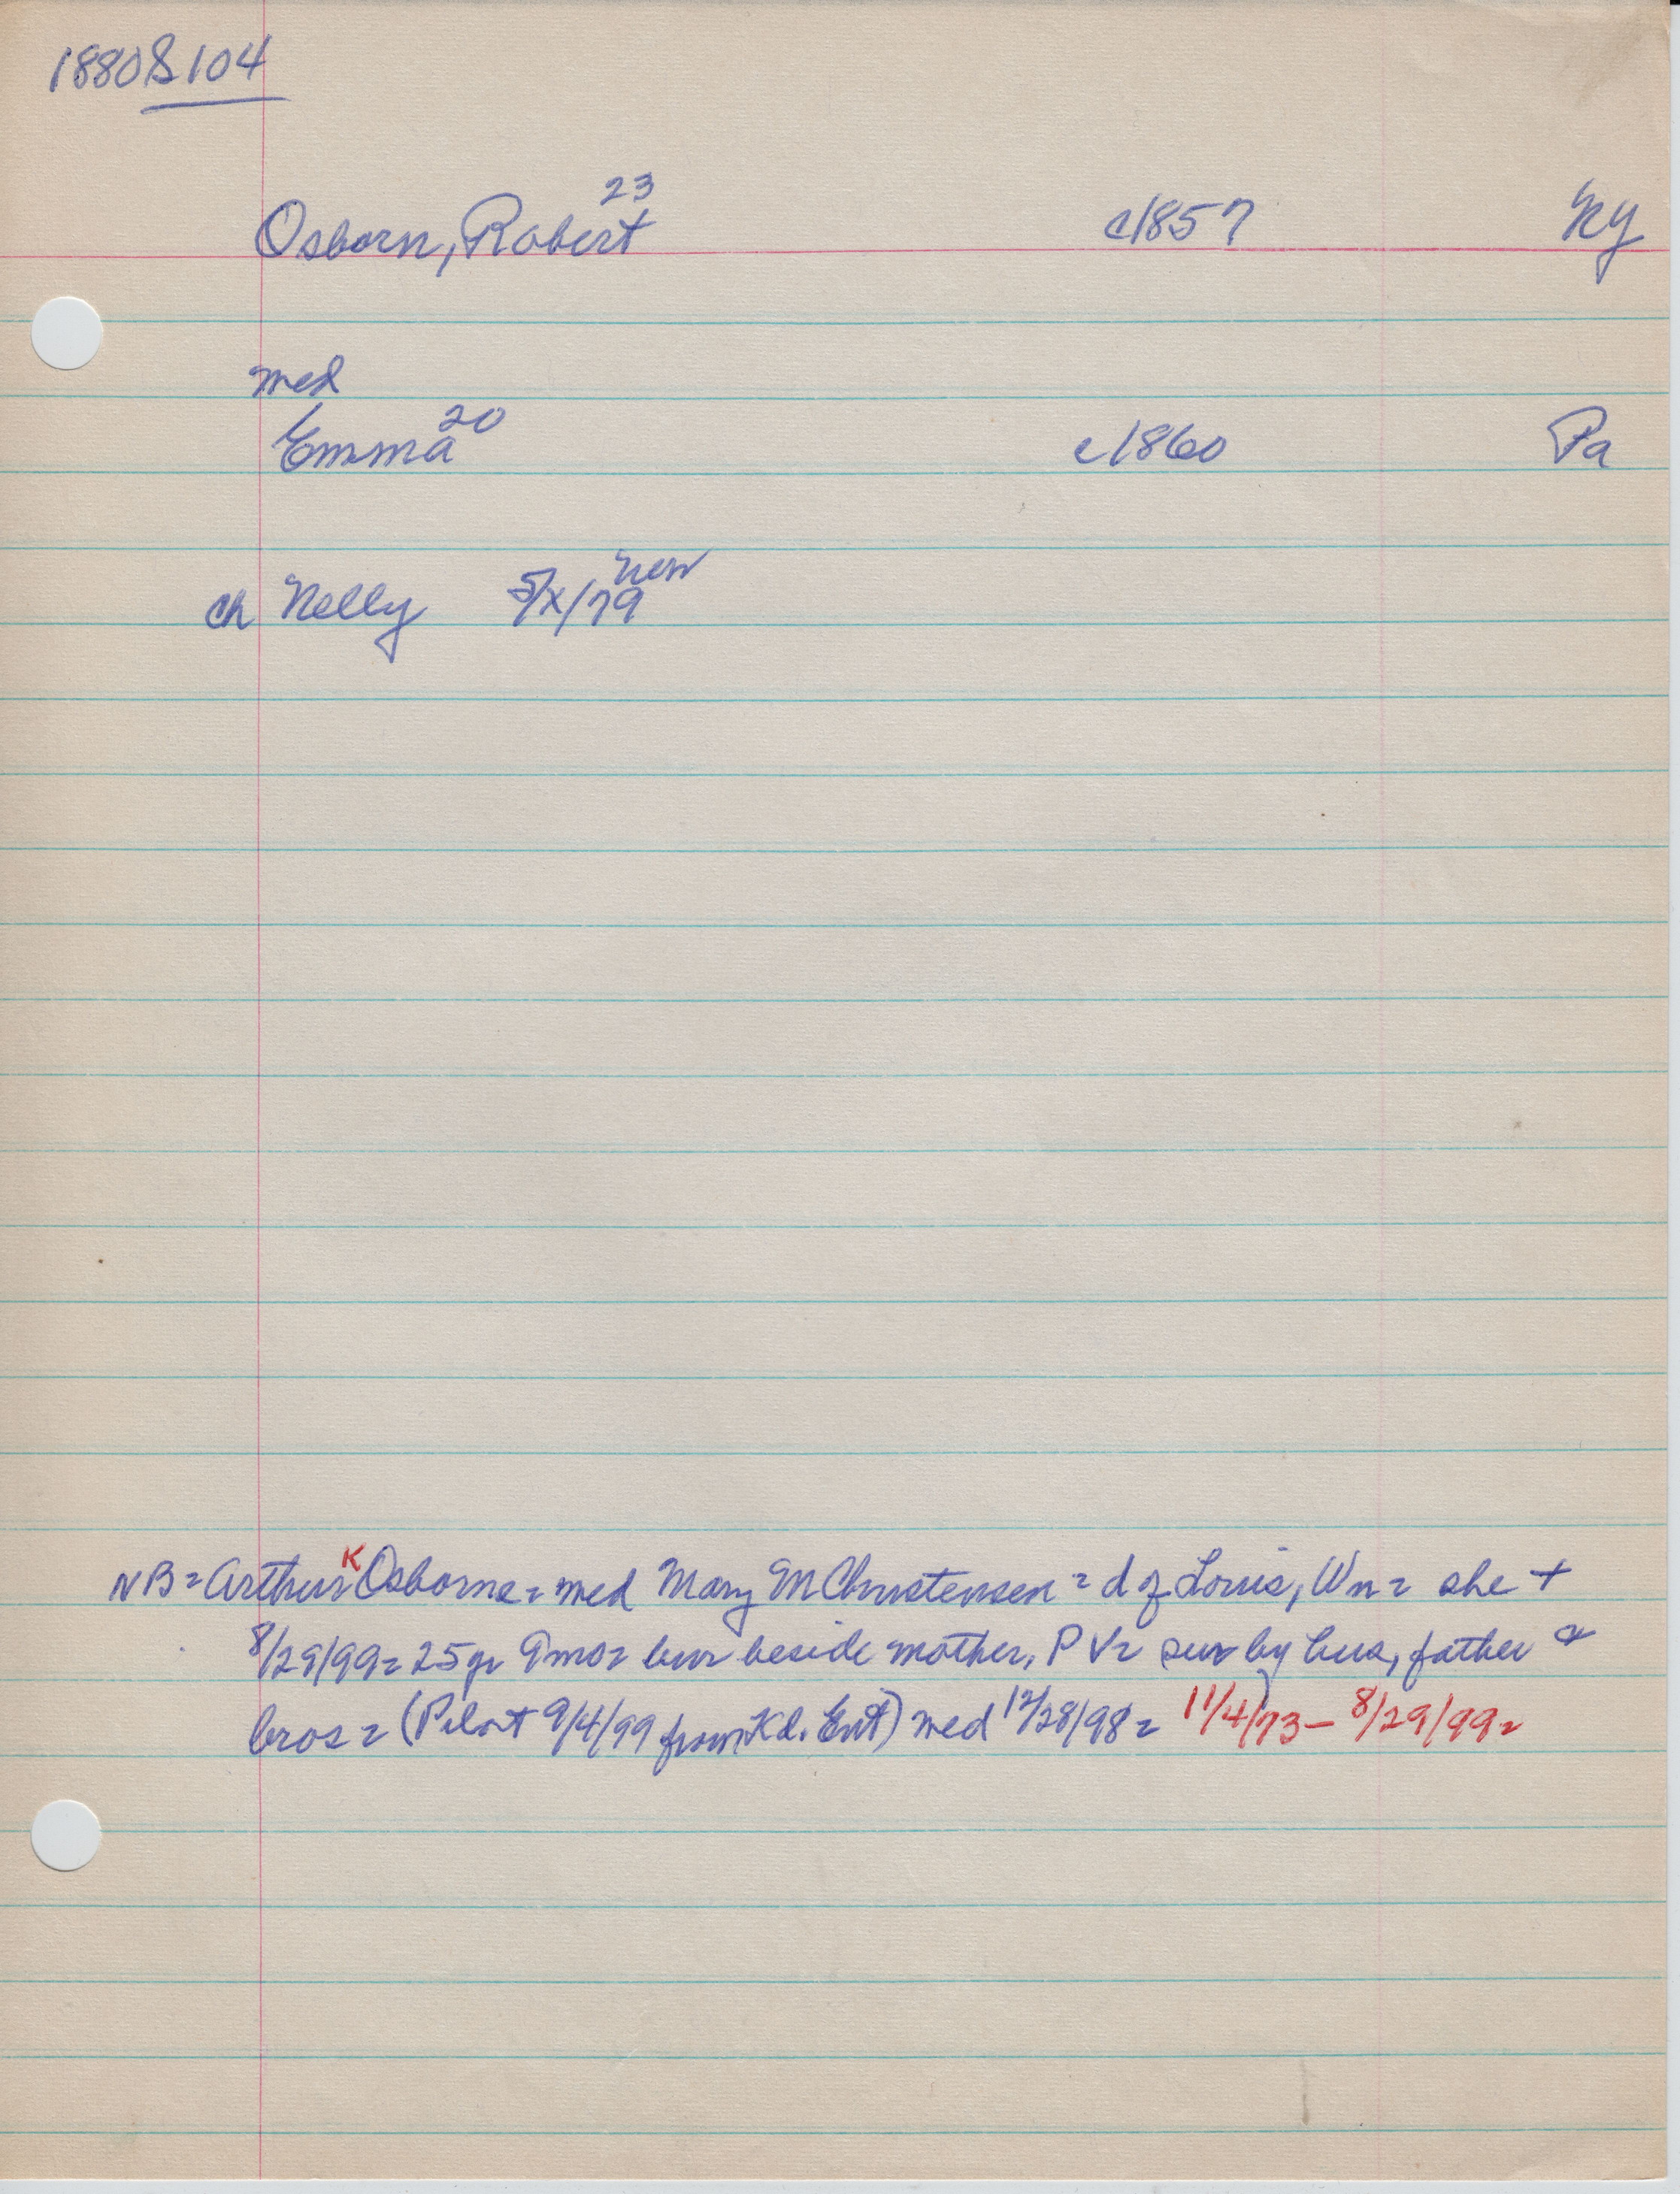 1880 S 104
Osborn, Robert 23 c1857 NY
med
Emma 20 c1860 Pa
ch Nelly 5/x/79 New
NB = Arthur K Osborne = med Mary M Christensen = d of Louis, Wn = she +
8/29/99 = 25 yr 9 mo = bur beside mother, P V = sur by hus, father &
bros = (Pilot 9/4/99 from Kd. Ent) med 12/28/98 = 11/4/73 – 8/29/99 =